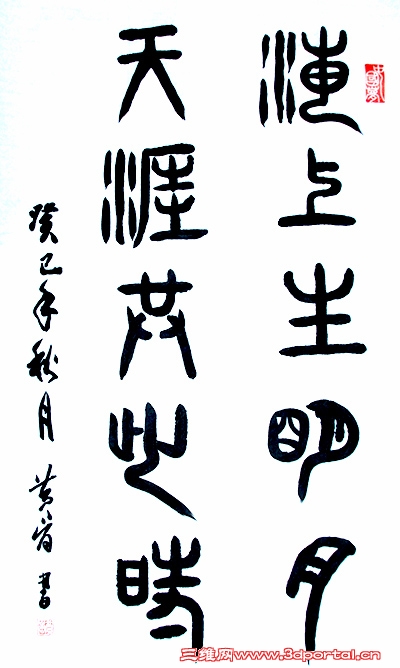 海上生明月
天涯共此時
癸巳年秋月 黄 書
三维网www.3dportal.cn